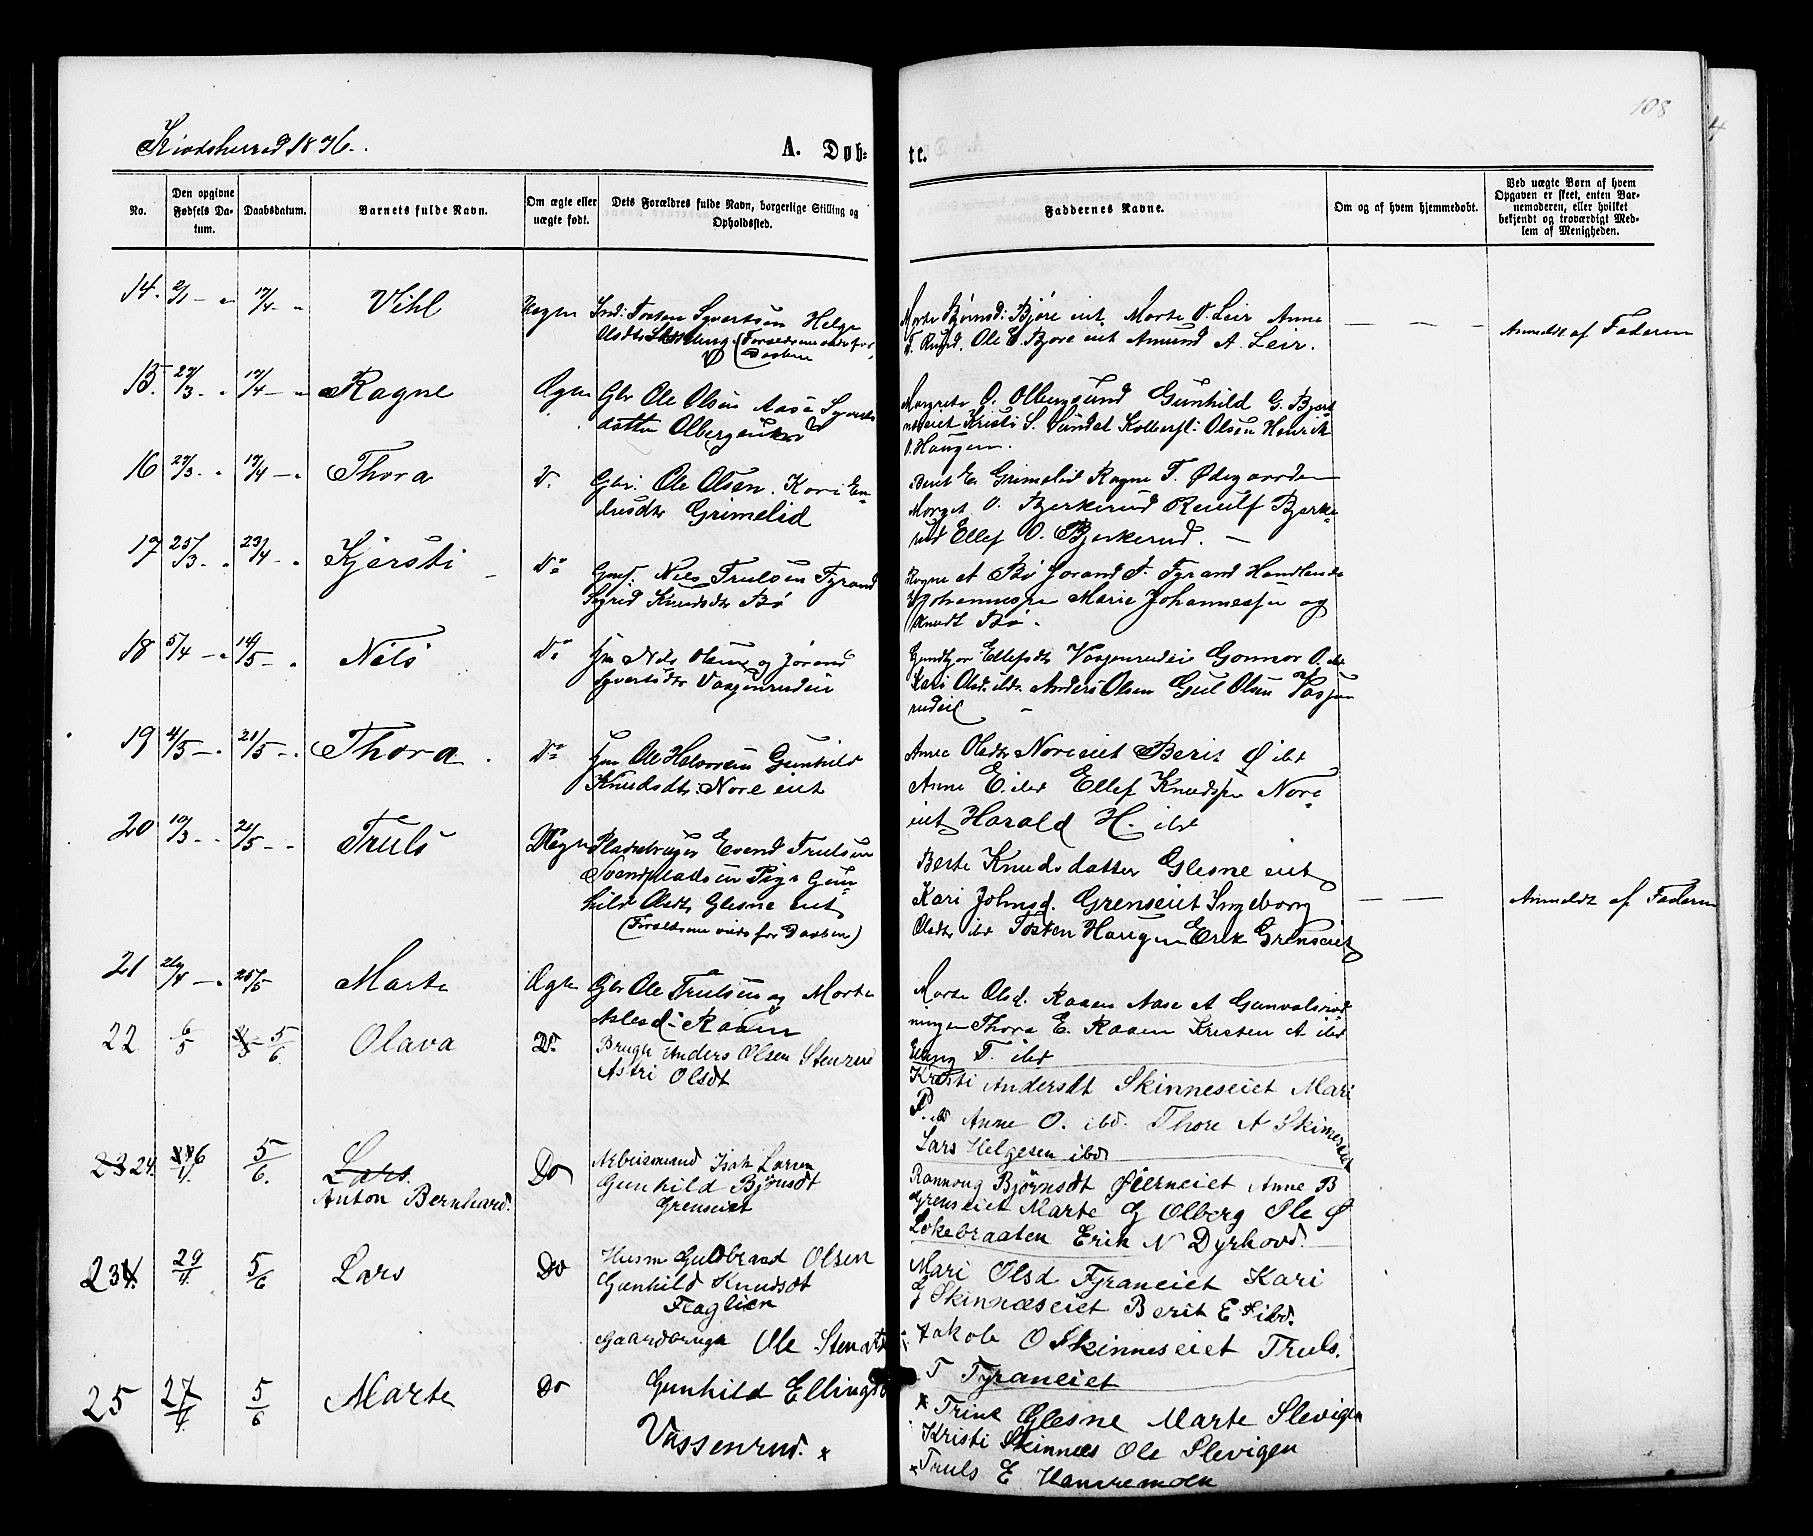 108
4
Kiødsherred 1876.
A. Døb-
te.
No.
Den opgivne Fødsels Da-tum.
Daabsdatum.
Barnets fulde Navn.
Om ægte eller uægte født.
Dets Forældres fulde Navn, borgerlige Stilling og Opholdssted.
Faddernes Navne.
Om og af hvem hjemmedøbt.
Ved uægte Børn af hvem Opgaven er skeet, enten Bar-nemoderen, eller hvilket bekjendt og troværdigt Med-lem af Menigheden.
14. 2/1 — " 17/4 - " Vihl Uægte Tosten Syvertsen Helge
(Forældrene viede før
Daaben
Marte Bjørnsd: Bjøre eiet Marte O. Leir Anne
Ole E. Bjøre eiet Amund A. Leir.
— — —
Anmeldt af Faderen
15. 27/3 - " 17/4 — " Ragne Ægte Gbr Ole Olsen Aase Syverts
datter Olbergsunds
Margrete O. Olbergsund Gunhild G. Bjerk
neseiet Kristi S. Sundet Kolbersf: Olsen Henrik
O. Haugen.
16 27/3 - " 17/4 — " Thora D. Gbr: Ole Olsen. Kari En-
dresdtr Grimelid
Berit E. Grimelid Ragne T. Ødegaarden
Marget O. Bjerkerud Reiulf Bjerke-
rud Ellef O. Bjerkerud. —
17 25/3 - " 23/4 - " Kjersti Do Gmf. Nils Trulsen Fyrand
Sigrid Knudsdtr Bø
Ragne A Bø Jorand T. Fyrand Handlende
Johannessen Marie Johannessen og
Knudt Bø.
18 5/4 — " 14/5 - " Nils Do Hm Nils Olsen og Jørand
Syvertsdtr Vassenrudeie
Gundbjør Ellefsdtr Vassenrudeie Gonnor O. ibd
Kari Olsd. ibd. Anders Olsen Gul Olsen Vassen
rudeie
19 4/5 — " 21/5 - " Thora Do Hm Ole Halvorsen Gunhild
Knudsdtr: Nore eiet
Anne Olsdtr Noreeiet Berit Ø ibd
Anne E. ibd Ellef Knudsen Nore
eiet Harald H. ibd
20 19/3 - " 21/5 - - Truls Uægte Pladsbruger Evend Trulsen
Svendspladsen Pige Gun-
hild Olsdtr Glesne eiet
(Forældrene viede før Daaben)
Berte Knudsdatter Glesne eiet
Kari Johnsd. Grenseiet Ingeborg
Olsdtr ibd Tosten Haugen Erik Grenseiet
— —
Anmeldt af Faderen
21 24/4 — " 25/5 Marte Ægte Gbr Ole Trulsen og Marte
Aslesd: Raaen
Marte Olsd. Raaen Aase A Gunvalsrød-
ningen Thora E. Raaen Kristen A ibd
Elling T. ibd
22 6/5 5/6 Olava Do Brugk Anders Olsen Stenrud
Astri Olsdt
Kristi Andersdt Skinneseiet Mari
P. ibd Anne O. ibd. Thore A Skinneseiet
Lars Helgesen ibd
23 24. 6/4 5/6. Lars.
Anton Bernhard. Do Arbeismand Isak Larsen
Gunhild Bjørnsdt
Grenseiet
Rannoug Bjørnsdt Øierneiet Anne B
Grenseiet Marte G Olberg Ole Ø
Løkebraaten Erik N Dyrhovd.
234. 29/4. 5/6 Lars Do Husm Gulbrand Olsen
Gunhild Knudsdt
Fraglien
Mari Olsd Fyraneiet Kari
G Skinneseiet Berit E S ibd.
Jakob O Skinneseiet Truls.
T Fyraneiet
25 27/4. 5/6 Marte Do Gaardbrugk Ole Stenarts
Gunhild Ellingsd
Vassenrud. x
x Trine Glesne Marte Slevigen
Kristi Skinnes Ole Slevigen
x Truls E Hanvremoen